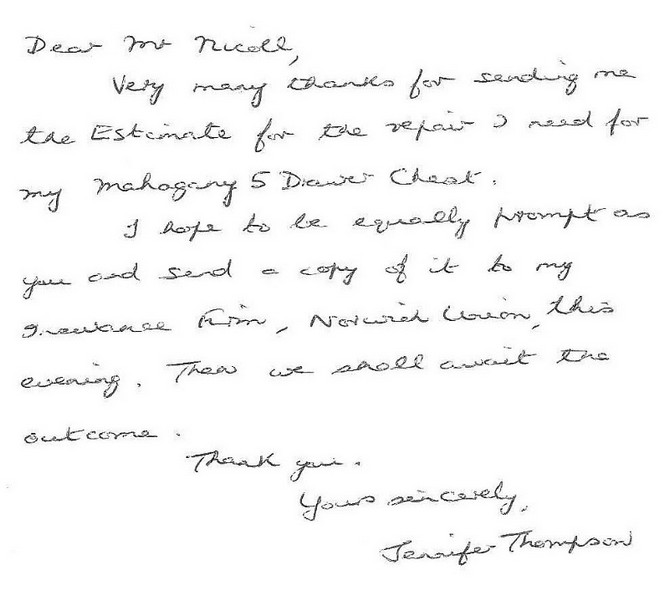 Dear Mr Nicoll,
Very many thanks for sending me
the Estimate for the repair I need for
my Mahogany 5 Drawer Chest.
I hope to be equally prompt as
you and send a copy of it to my
Insurance Firm, Norwich Union, this
evening. Then we shall await the
outcome.
Thank you.
Yours sincerely,
Jennifer Thompson